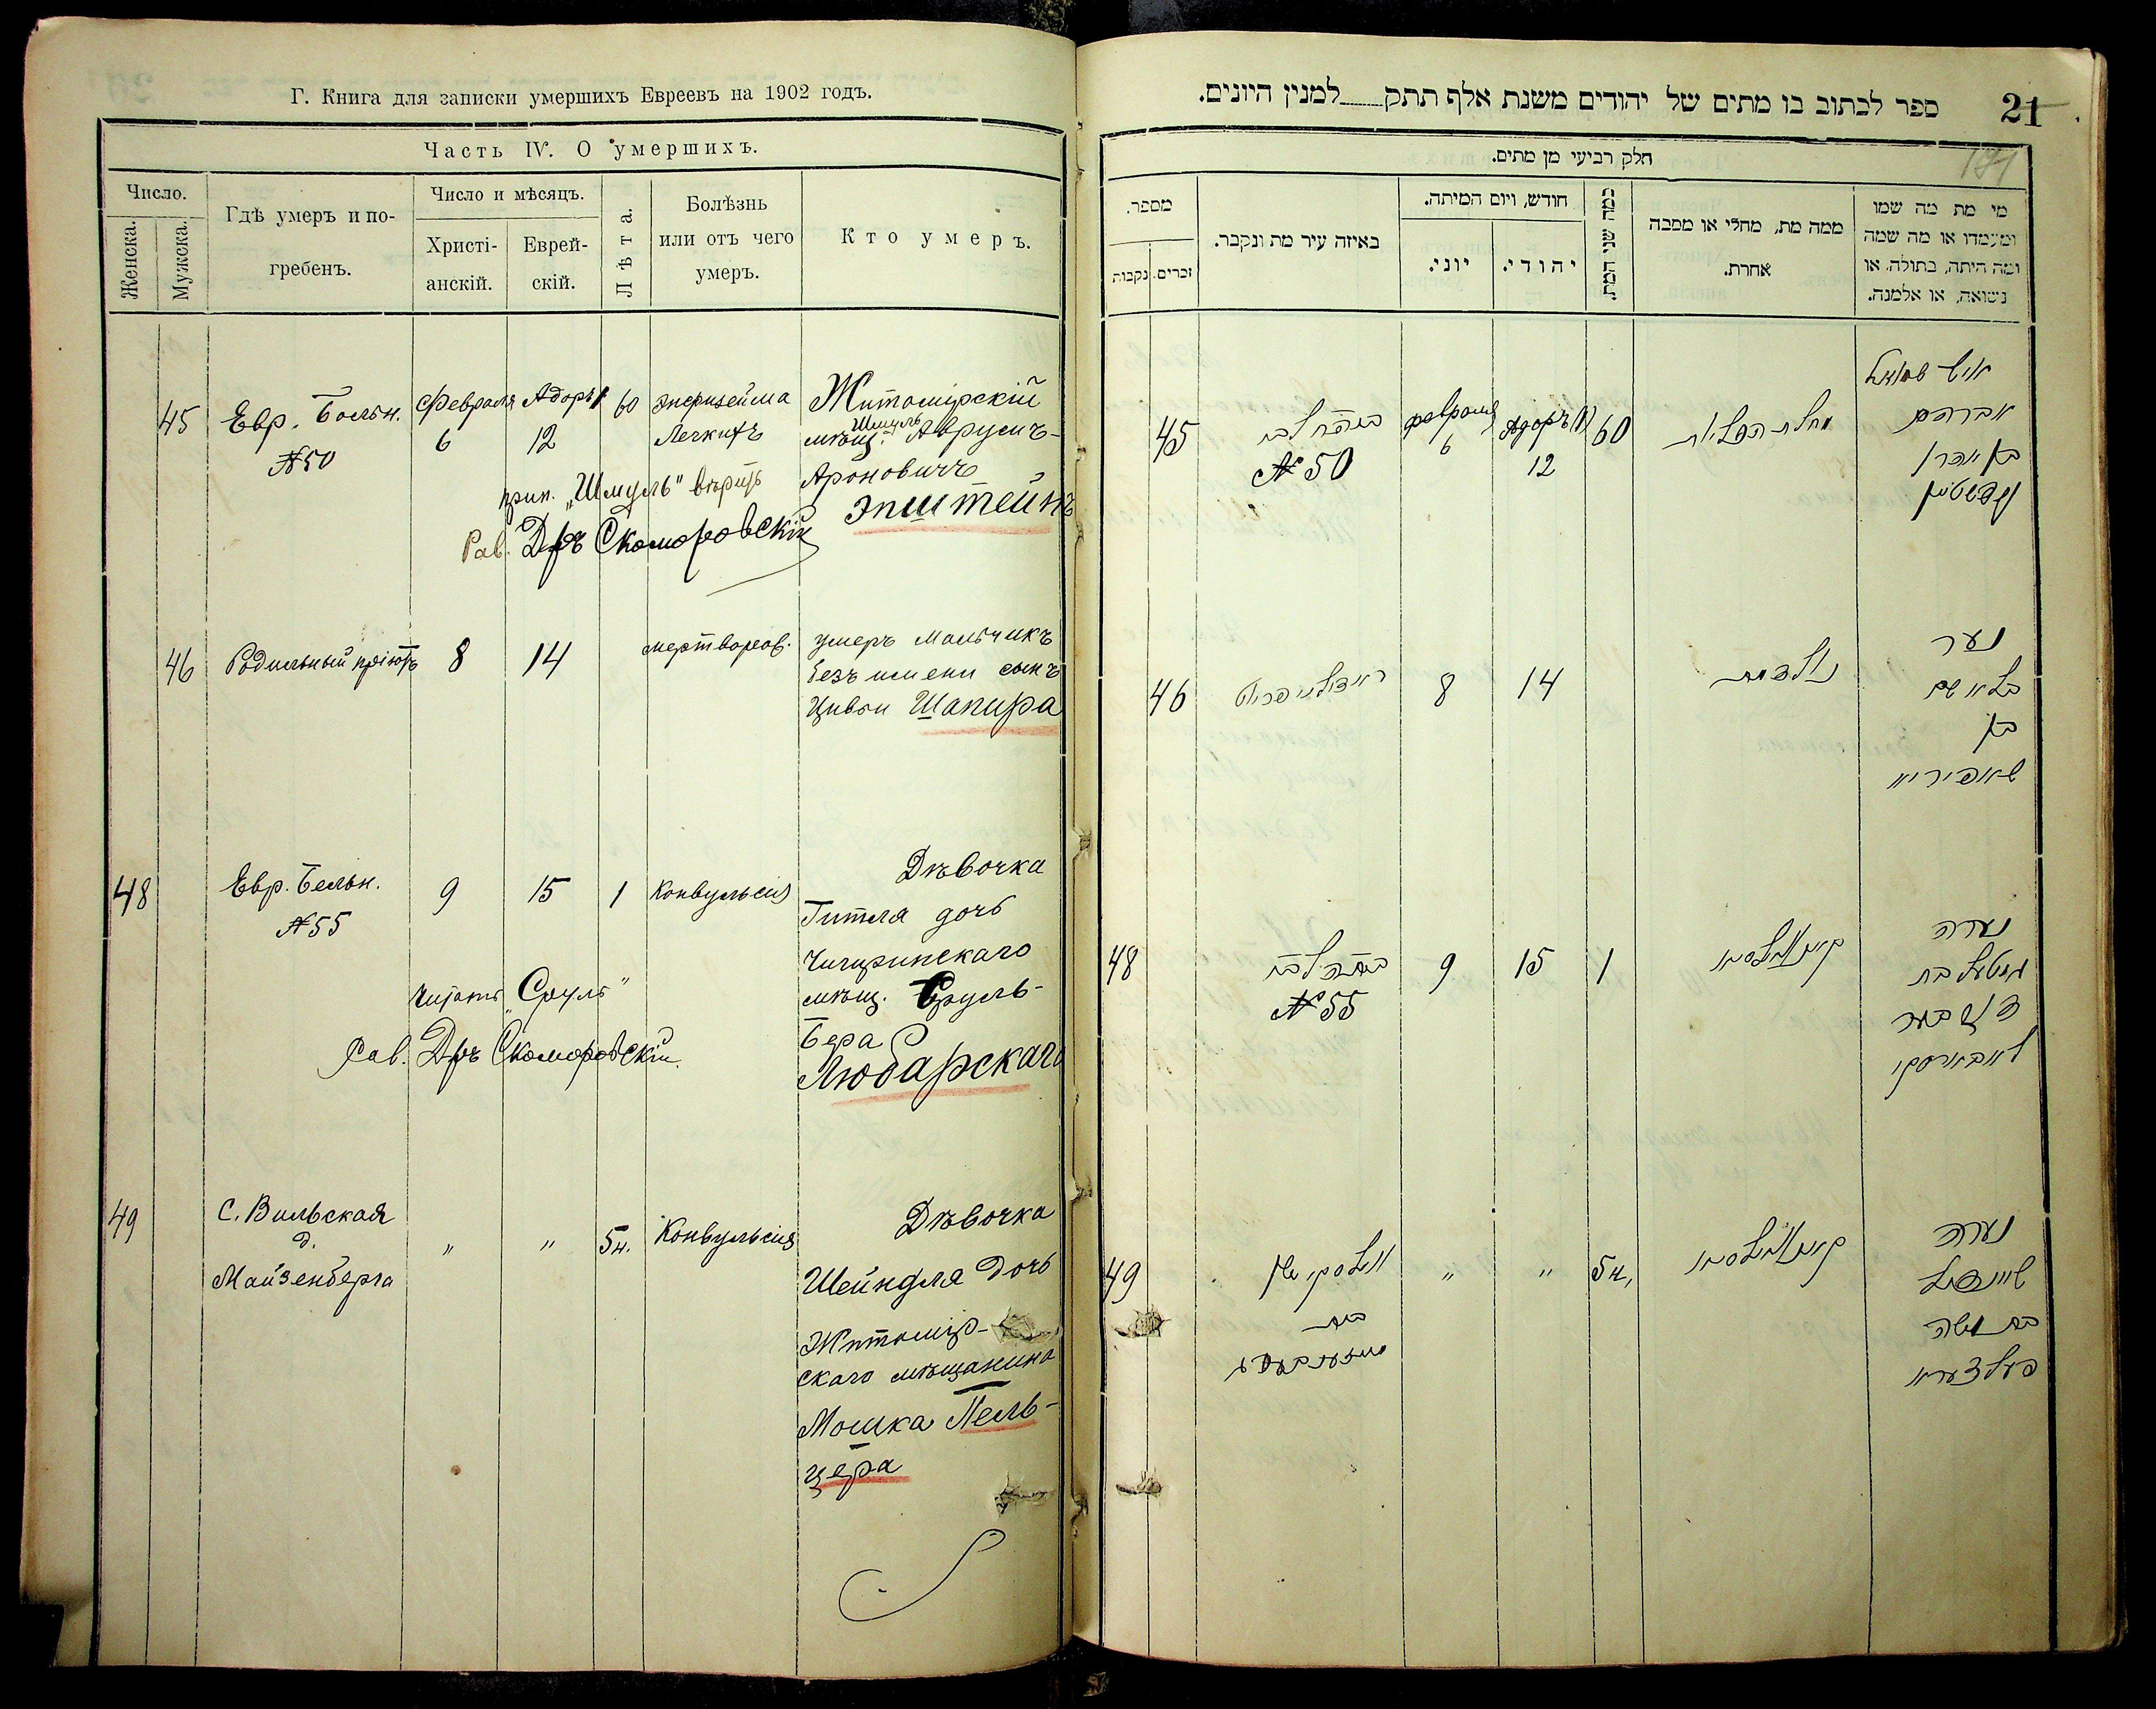 Г. Книга для записки умершихъ Евреевъ на 1902 годъ.
Часть IV. О умершихъ.
Число.
Женска.
Мужска.
Гдѣ умеръ и по-
гребенъ.
Число и мѣсяцъ.
Христі-
анскій.
Еврей-
скій.
Лѣта.
Болѣзнь
или отъ чего
умеръ.
Кто умеръ.
45
Евр. Больн.
№ 50
Февраля
6
Адоръ I
12
60
Энфизейма
Легкихъ
Житомірскій
Шмуль
мѣщ. Аврумъ-
Ароновичъ
Эпштейнъ
прип. „Шмуль" вѣрить
Рав. Дръ Скоморовскій
46
Родильный пріютъ
8
14
мертворов.
умеръ мальчикъ
безъ имени сынъ
Цивьи Шапира
48
Евр. Больн.
№ 55
9
15
1
Конвульсія
Дѣвочка
Гитля дочь
Чигиринскаго
мѣщ. Сруль-
Бера
Любарскаго
Читать „Сруль"
Рав. Дръ Скоморовскій.
49
С. Вильская
д.
Майзенберга
"
"
5 н.
Конвульсія
Дѣвочка
Шейндля дочь
Житомір-
скаго мѣщанина
Мошка Пель-
цера
21
ספר לכתוב בו מתים של יהודים משנת אלף תתק למנין היונים.
חלק רביעי מן מתים.
מספר.
נקבות
זכרים.
באיזה עיר מת ונקבר.
חודש, ויום המיתה.
יוני.
יהודי.
כמה שני המת.
ממה מת, מחלי או מסבה
אחרת.
מי מת מה שמו
ומעמדו או מה שמה
ומה היתה, בתולה, או
נשואה, או אלמנה.
45
№ 50
февраля
6
Адоръ (I)
12
60
איש שמואל
אברהם
בן אהרן
עפשטיין
46
8
14
נער
בלא שם
בן
שאפירא
48
№ 55
9
15
1
קאנוואולסיא
נערה
גיטל בת
ליובארסקי
49
"
"
5 н.
קאנוואולסיא
נערה
שיינדל
בת משה
פעלצער